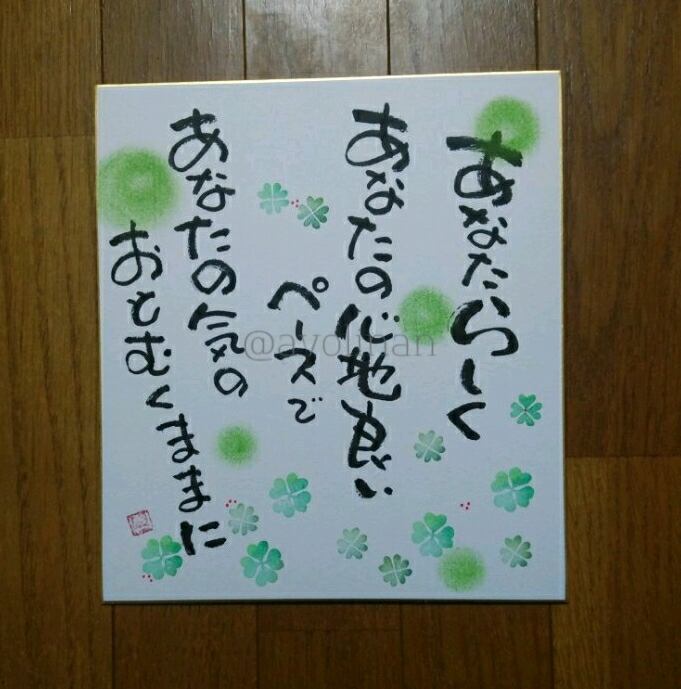 あなたらしく
あなたの心地良い
ペースで
あなたの気の
おもむくままに